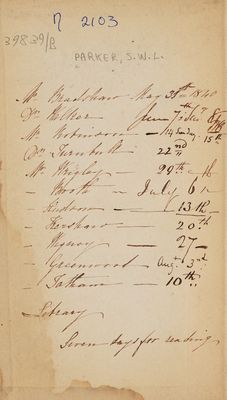 η 2103
39839/B
PARKER, S.W.L.
Mr Bradshaw May 31th 1840
Dr Helker June 7th
Mr Robinson — 14 Sunday 15th
Dr Turnbull 22nd
Mr Wrigley — 29th
— Booth — July 6
— — 13th
— Kershaw — 20th
— 27 —
— Greenwood Augt 3rd
— Tatham — 10th
Library
Seven days for reading